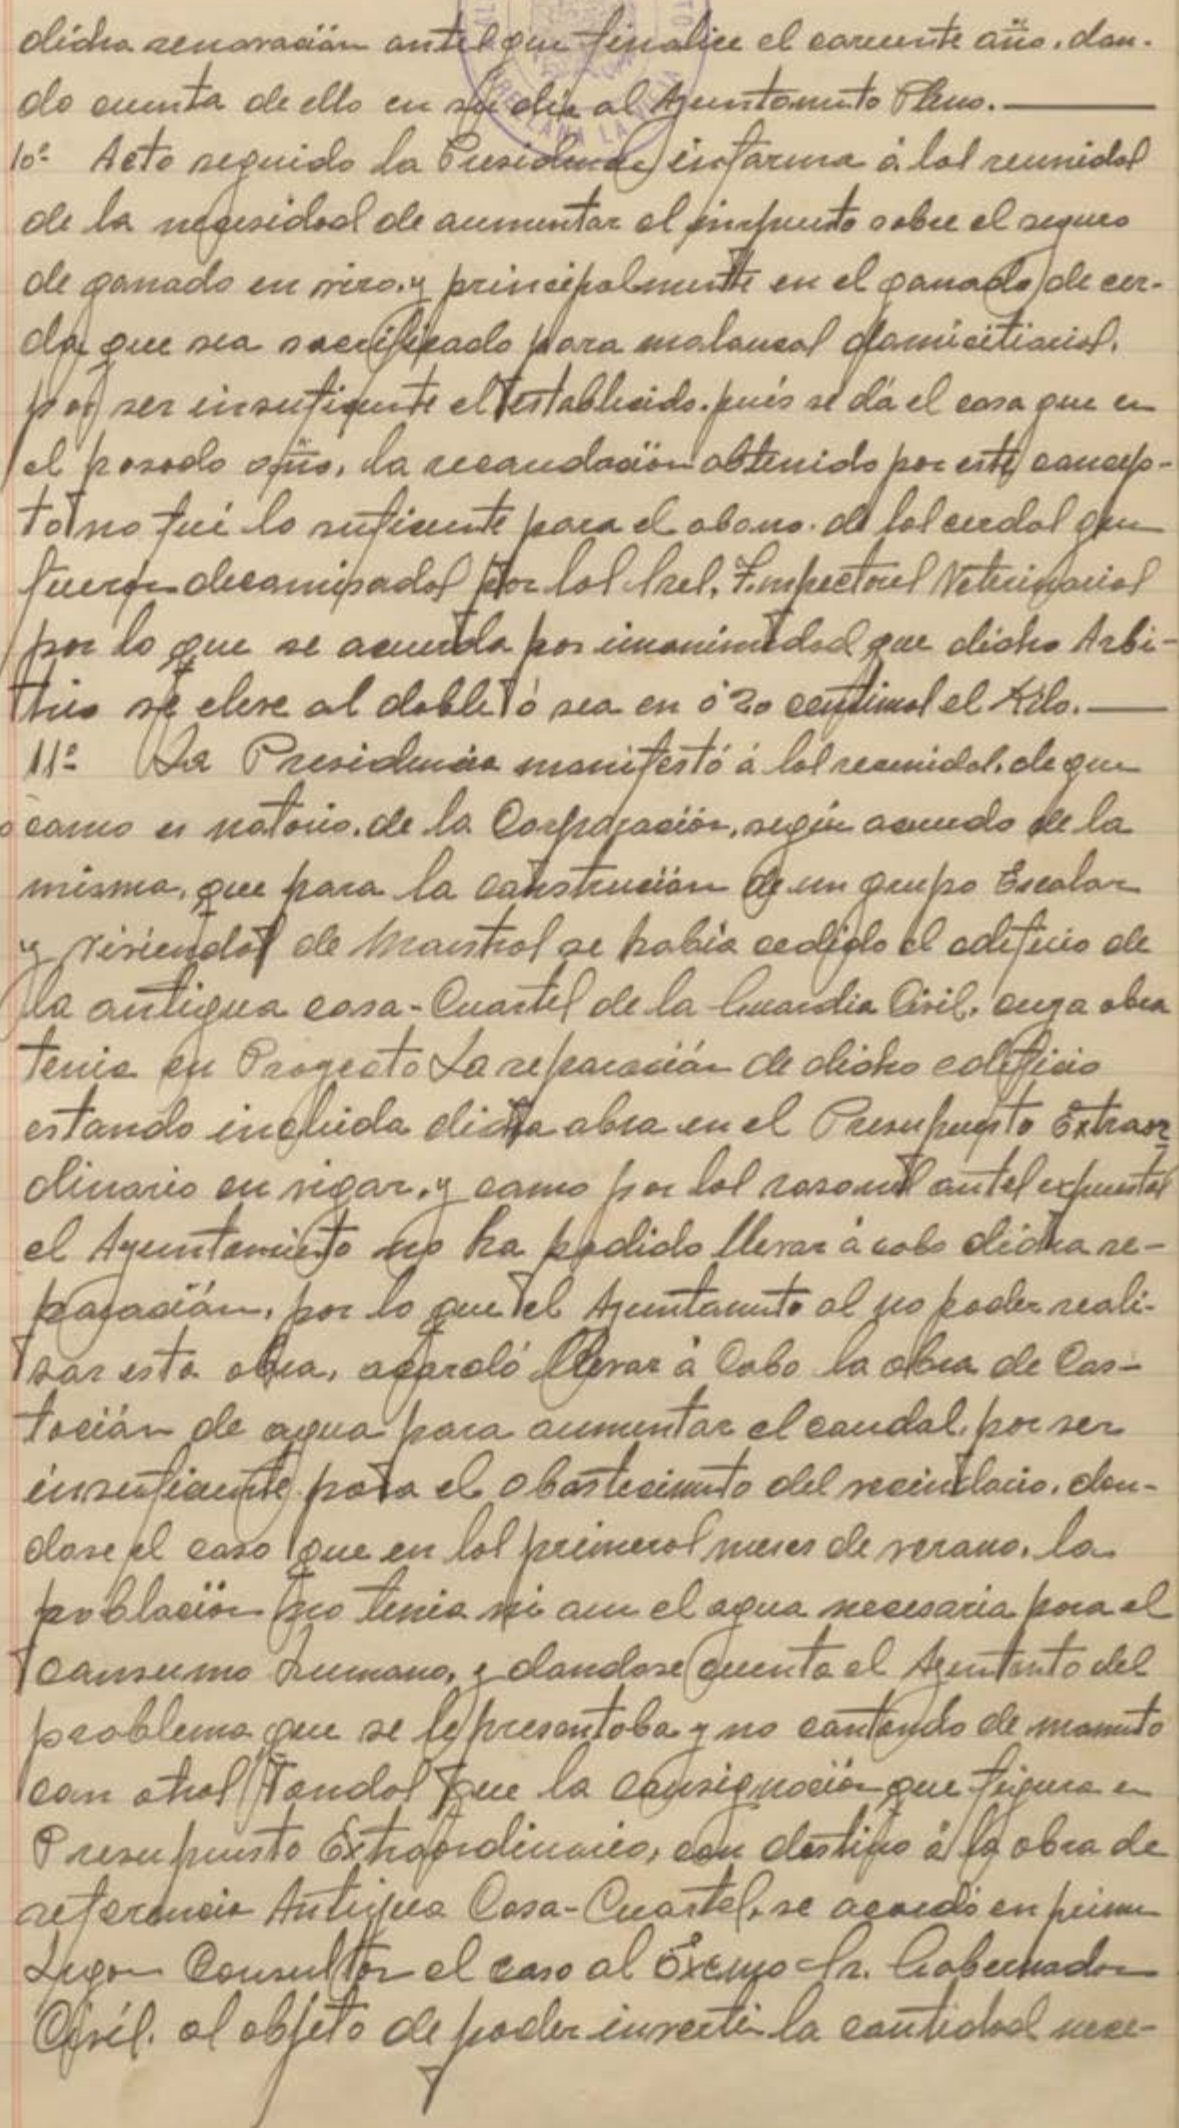 dicha renovación antes que finalice el corriente año, dan-
do cuenta de ello en su dia al Ayuntamiento Pleno.
10º Acto seguido la Presidencia informa á los reunidos
de la necesidad de aumentar el impuesto sobre el seguro
de ganado en vivo, y principalmente en el ganado de cer-
da que sea sacrificado para matanzas domicitiarias,
por ser insuficiente el establecido, pués se dá el caso que en
el pasado año, la recaudación obtenida por este concep-
to no fué lo suficiente para el abono de los cerdos que
fueron decomisados por los Sres. Inspectores Veterinarios
por lo que se acuerda por unanimidad que dicho Arbi-
trio se eleve al doble ó sea en 0'20 centimos el Kilo.
11º La Presidencia manifestó á los reunidos, de que
como es notorio, de la Corporación, según acuerdo de la
misma, que para la construción de un grupo Escolar
y Viviendas de Maestros se habia cedido el edificio de
la antigua casa-Cuartel de la Guardia Civil, cuya obra
tenia en Proyecto La reparación de dicho edificio
estando incluida dicha obra en el Presupuesto Extraor
dinario en vigor, y como por las razones antes expuestas
el Ayuntamiento no ha podido llevar á cabo dicha re-
paración, por lo que el Ayuntamiento al no poder reali-
zar esta obra, acordó llevar á Cabo la obra de Cas-
tación de agua para aumentar el caudal, por ser
insuficiente para el abastecimiento del vecindario, dan-
dose el caso que en los primeros meses de verano, la
población no tenia ni aun el agua necesaria para el
consumo humano, y dandose cuenta el Ayuntamiento del
problema que se le presentaba y no contando de momento
con otros fondos que la consignación que figura en
Presupuesto Extraordinario, con destino á la obra de
referencia Antigua Casa-Cuartel, se acordó en primer
Lugar Consultar el caso al Excmo Sr. Gobernador
Civil, al objeto de poder invertir la cantidad nece-